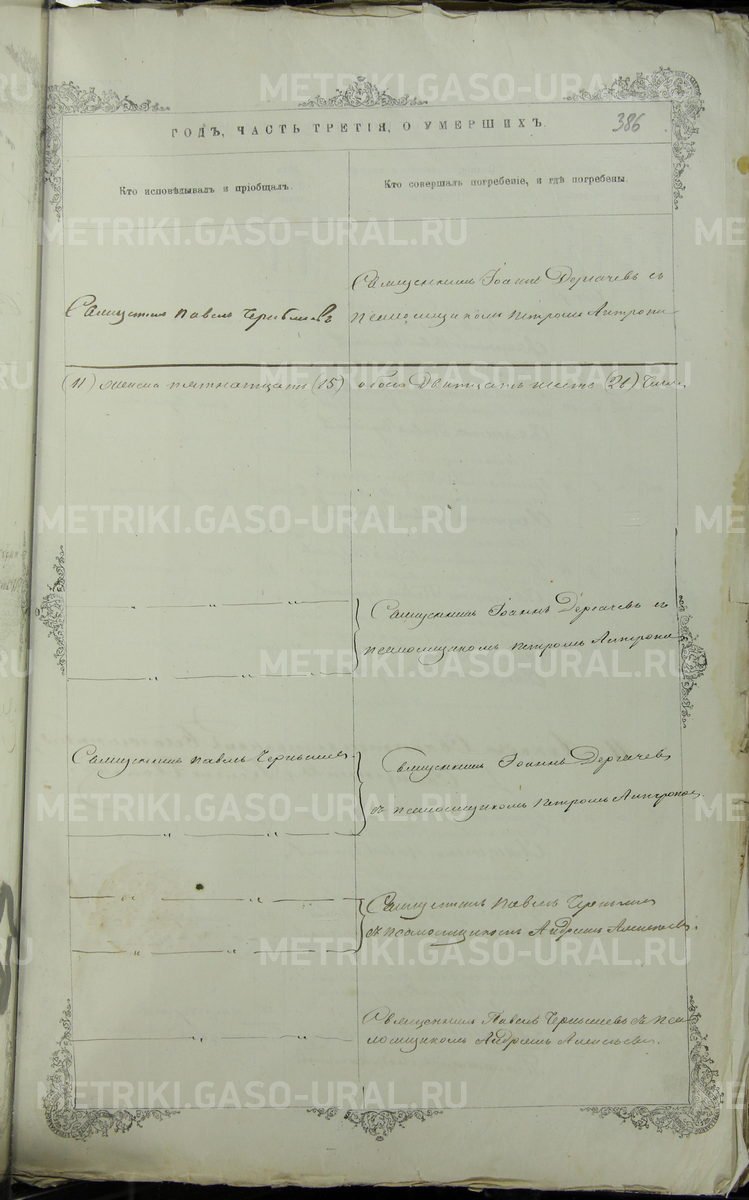 METRIKI.GASO-URAL.RU
386
ГОДЪ, ЧАСТЬ ТРЕТІЯ, О УМЕРШИХЪ.
Кто исповѣдывалъ и пріобщалъ.
Кто совершалъ погребеніе, и гдѣ погребены.
Священникъ Павелъ Чернышевъ
Священникъ Іоаннъ Дергачевъ съ
псаломщикомъ Петромъ
(11) женска пятнатцать (15)
обоего дватцать шесть (26)
Священникъ Іоаннъ Дергачевъ съ
псаломщикомъ Петромъ
Священникъ Павелъ Чернышевъ
Священникъ Іоаннъ Дергачевъ
съ псаломщикомъ Петромъ
Священникъ Павелъ Чернышевъ
съ псаломщикомъ Андреемъ
Священникъ Павелъ Чернышевъ съ пса-
ломщикомъ Андреемъ